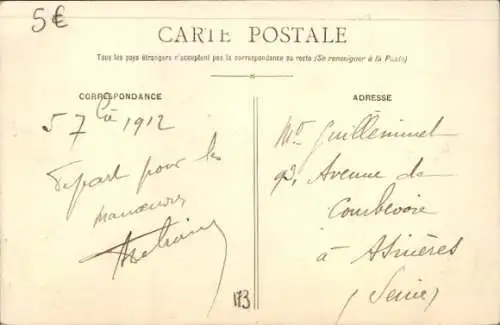 5€
CARTE POSTALE
Tous les pays étrangers n'acceptent pas la correspondance au recto (Se renseigner à la Poste)
CORRESPONDANCE
ADRESSE
5 7 1912
Départ pour les
manœuvres
Mr Guilleminet
92, Avenue de
Courbevoie
à Asnières
(Seine)
173